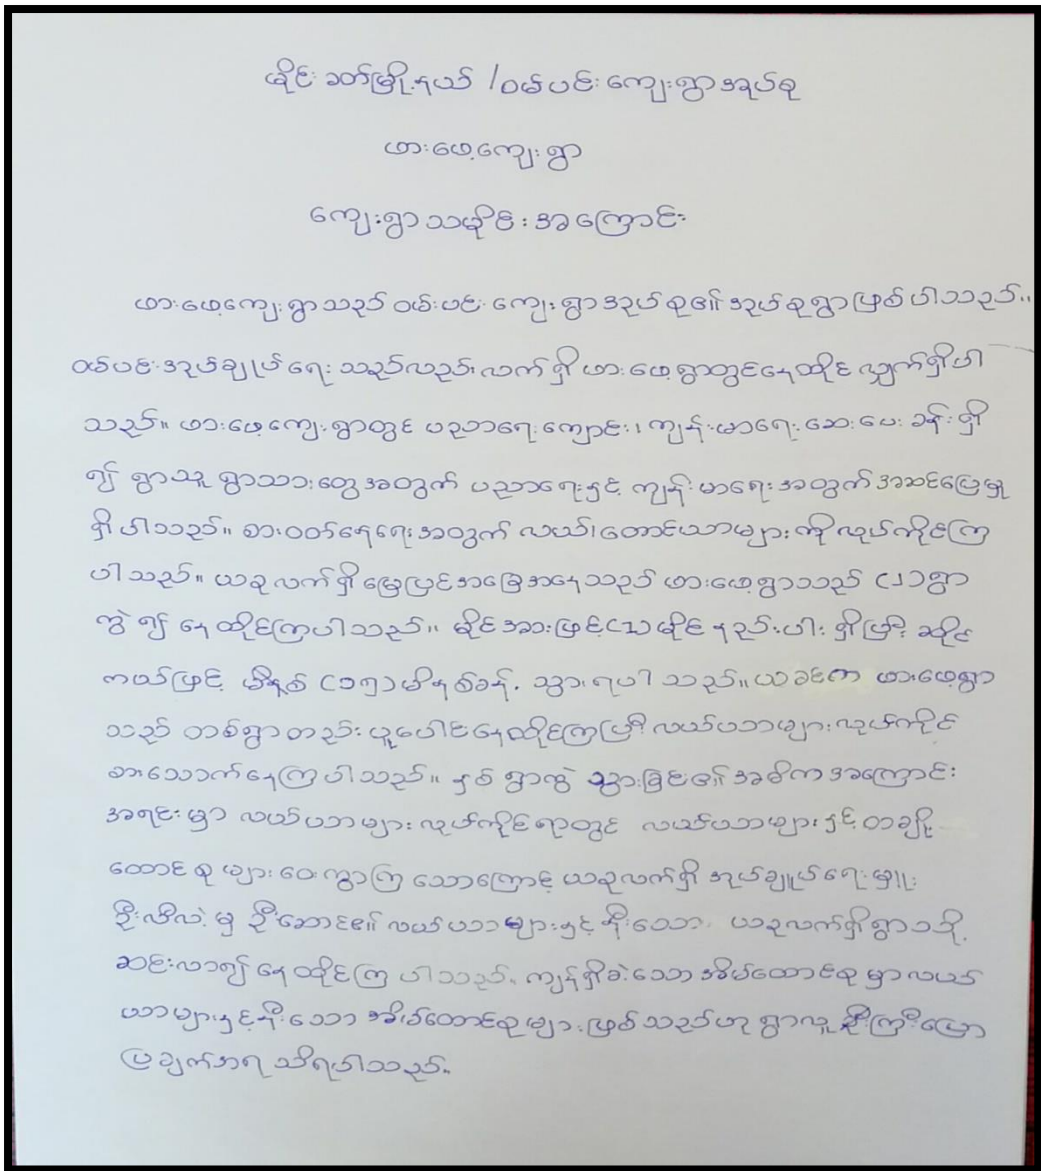 မိုင်းခတ်မြို့နယ် /ဝမ်ပင်းကျေးရွာအုပ်စု
ဖားဖေ့ကျေးရွာ
ကျေးရွာသမိုင်းအကြောင်း
ဖားဖေ့ကျေးရွာသည် ဝမ်းပင်း ကျေးရွာအုပ်စု၏ အုပ်စုရွာဖြစ်ပါသည်။
ဝမ်ပင်းအုပ်ချုပ်ရေး သည်လည်းလက်ရှိဖားဖေ့ရွာတွင်နေထိုင်လျှက်ရှိပါ
သည်။ ဖားဖေ့ကျေးရွာတွင် ပညာရေးကျောင်း၊ ကျန်းမာရေးဆေးပေးခန်းရှိ
၍ ရွာသူ ရွာသားတွေအတွက် ပညာရေးနှင့် ကျန်းမာရေးအတွက် အဆင်ပြေမှု
ရှိပါသည်။ စားဝတ်နေရေးအတွက် လယ်၊တောင်ယာများကိုလုပ်ကိုင်ကြ
ပါသည်။ ယခုလက်ရှိမြေပြင်အခြေအနေသည် ဖားဖေ့ရွာသည် (၂)ရွာ
ကွဲ၍ နေထိုင်ကြပါသည်။ မိုင်အားဖြင့်(၁)မိုင် နည်းပါး ရှိပြီး ဆိုင်
ကယ်ဖြင့် မိနစ် (၁၅)မိနစ်ခန့် သွားရပါသည်။ယခင်က ဖားဖေ့ရွာ
သည် တစ်ရွာတည်းပူပေါင်းနေထိုင်ကြပြီးလယ်ယာများလုပ်ကိုင်
စားသောက်နေကြပါသည်။ နှစ်ရွာကွဲ သွားခြင်၏ အဓိကအကြောင်း
အရင်းမှာ လယ်ယာများလုပ်ကိုင်ရာတွင် လယ်ယာများနှင့်တချို့
ထောင်စုများဝေးကွာကြသောကြောင့် ယခုလက်ရှိ အုပ်ချူပ်ရေးမှူး
ဦးလီလဲ့မှ ဦးဆောင်၏ လယ်ယာများနှင့်နီးသော ယခုလက်ရှိရွာသို့
ဆင်းလာ၍နေထိုင်ကြပါသည်။ ကျန်ရှိခဲ့သော အိမ်ထောင်စုမှာလယ်
ယာများနှင့်နီးသော အိမ်ထောင်စုများဖြစ်သည်ဟု ရွာလူဦးကြီးပြော
ပြချက်အရ သိရပါသည်။